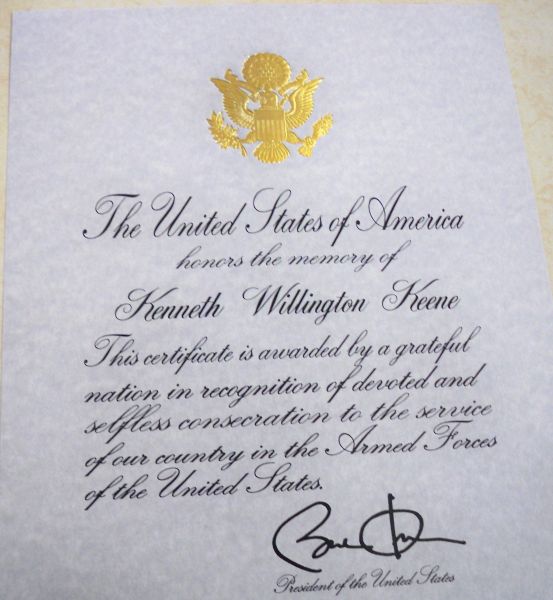 The United States of America
honors the memory of
Kenneth Willington Keene
This certificate is awarded by a grateful
nation in recognition of devoted and
selfless consecration to the service
of our country in the Armed Forces
of the United States.
President of the United States